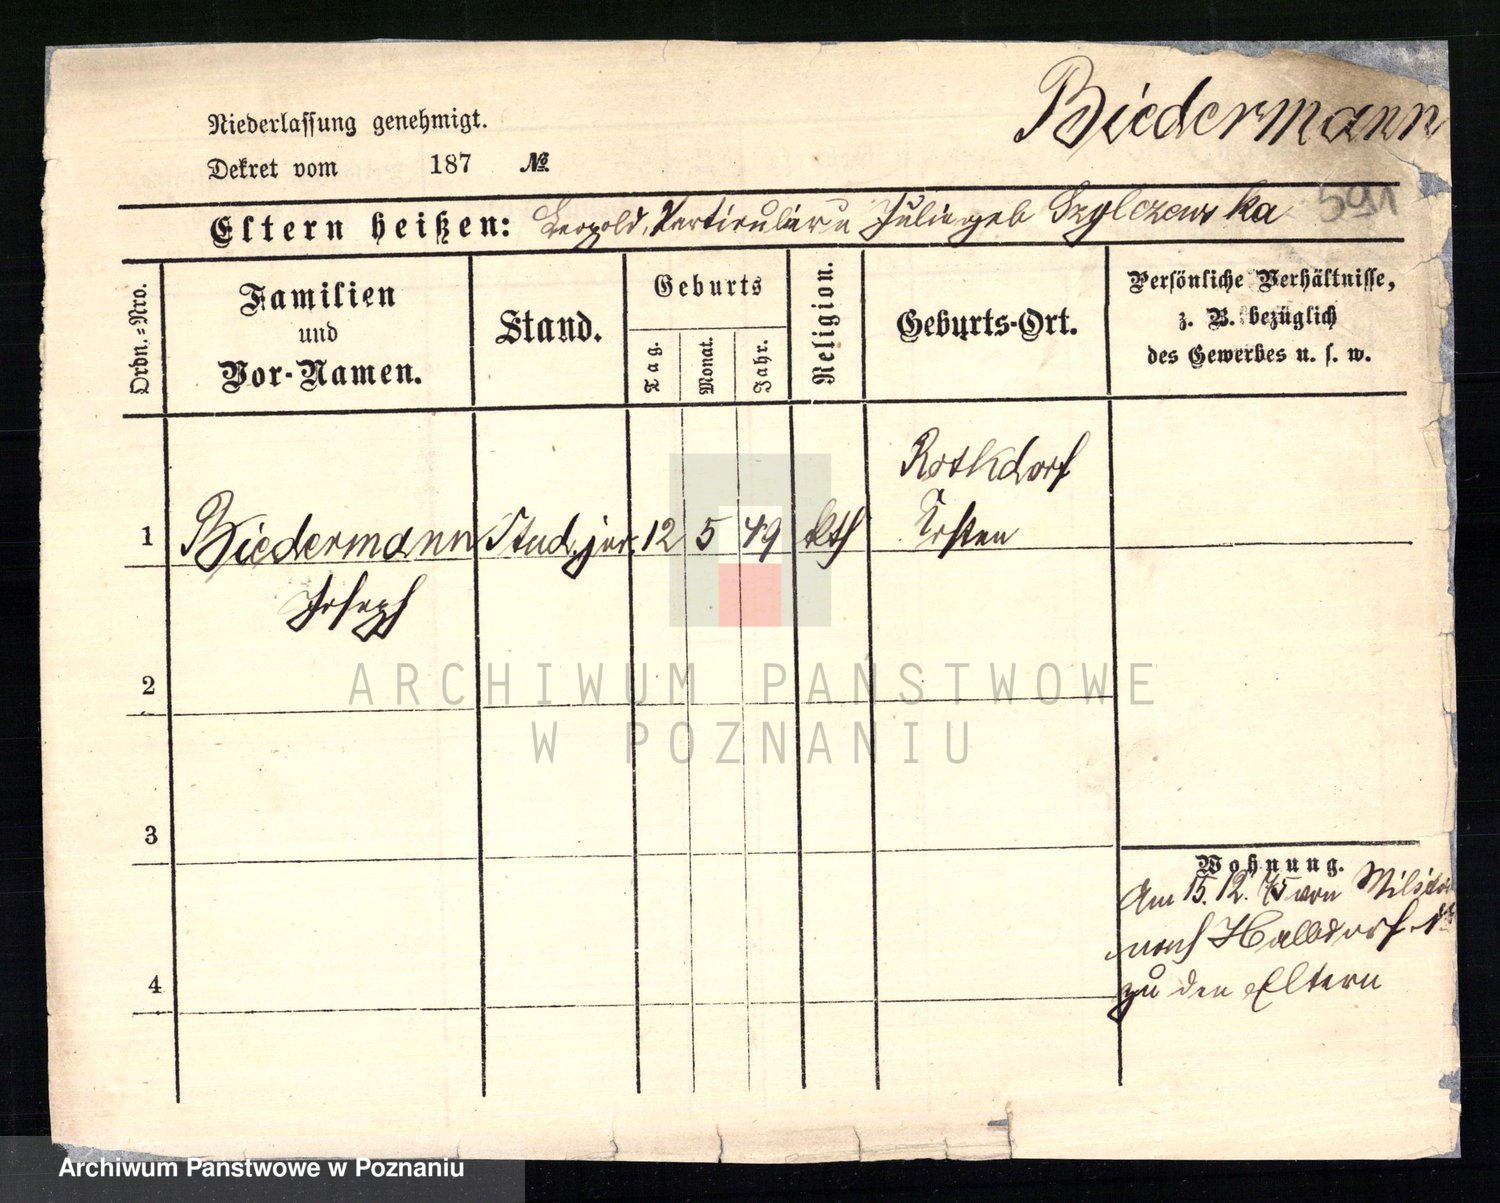 Biedermann
Niederlassung genehmigt.
Dekret vom 187 №
591
Eltern heißen: Leopold, Partikulier u Julie geb Szylczewska
Ordn.-Nro.
Familien
und
Vor-Namen.
Stand.
Geburts
Tag.
Monat.
Jahr.
Religion.
Geburts-Ort.
Persönliche Verhältnisse,
z. B. bezüglich
des Gewerbes u. s. w.
Rothdorf
1 Biedermann Stud. jur. 12 5 49 kth Kosten
Joseph
2
3
4
Wohnung.
Am 15. 12. 75 von
nach Halbdorf
zu den Eltern
ARCHIWUM PAŃSTWOWE
W POZNANIU
Archiwum Państwowe w Poznaniu